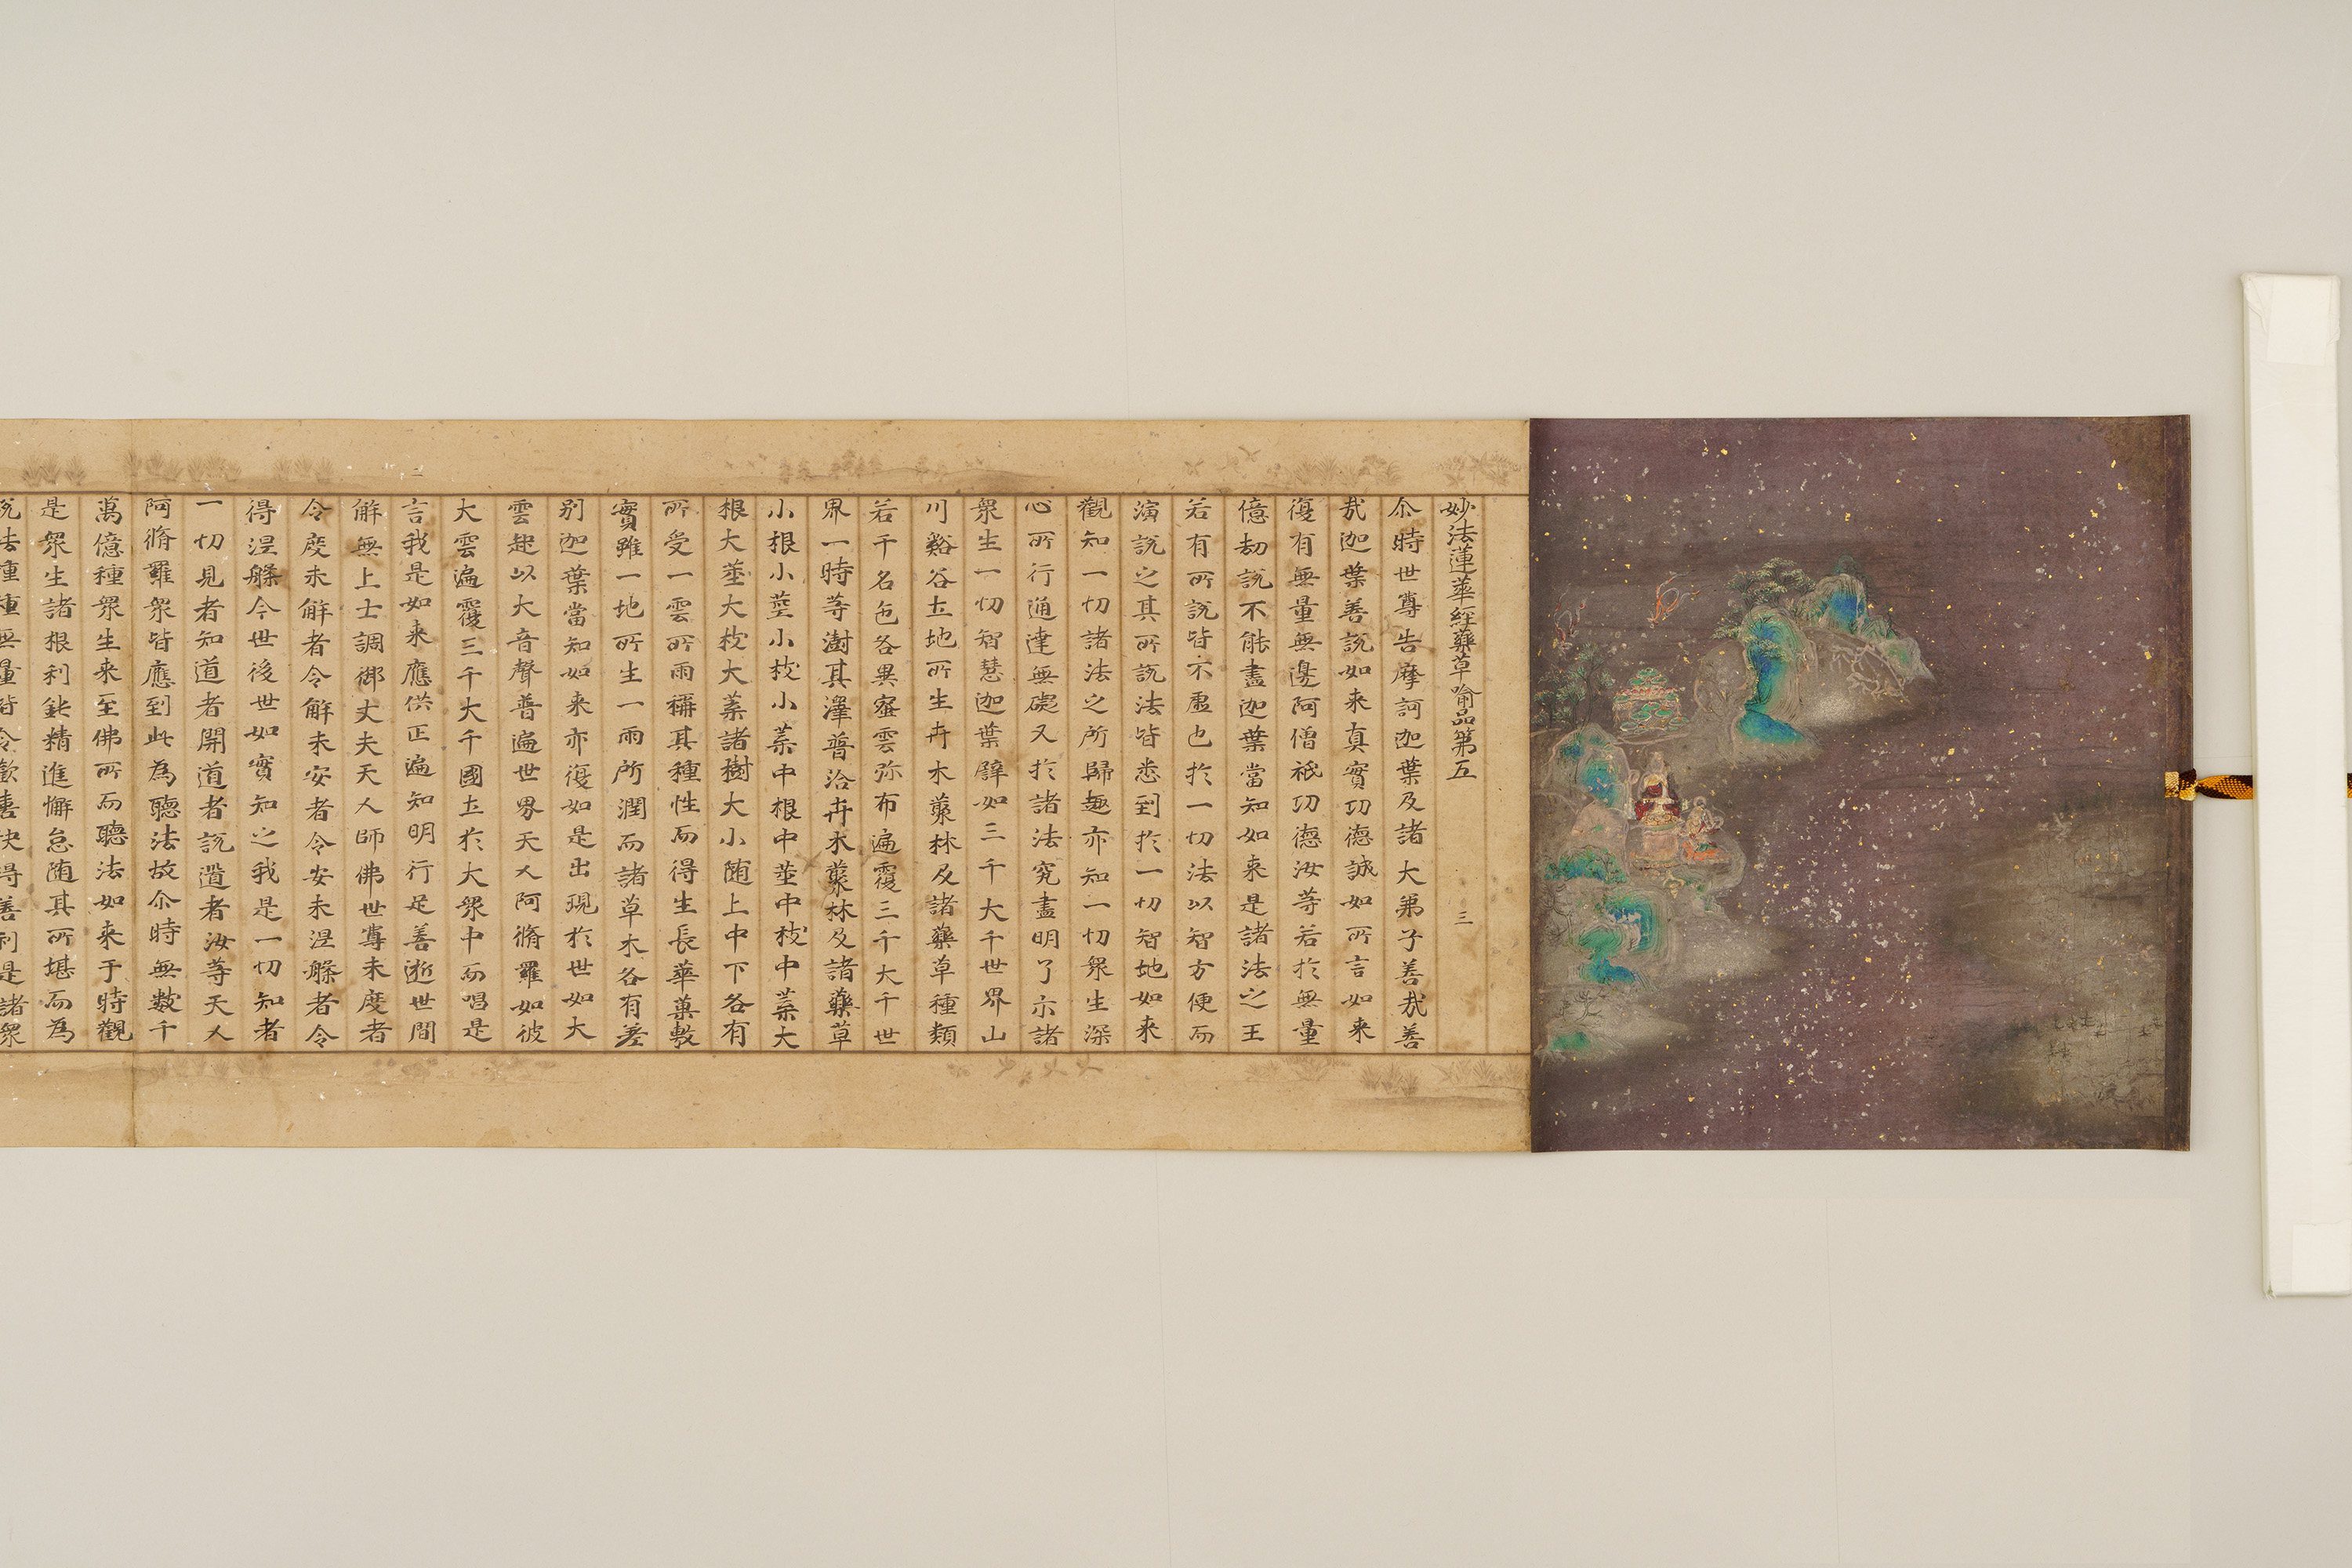 妙法蓮華經藥草喻品第五 三
尒時世尊告摩訶迦葉及諸大弟子善哉善
哉迦葉善說如来真實功德誠如所言如来
復有無量無邊阿僧祇功德汝等若於無量
億劫說不能盡迦葉當知如来是諸法之王
若有所說皆不虛也於一切法以智方便而
演說之其所說法皆悉到於一切智地如来
觀知一切諸法之所歸趣亦知一切衆生深
心所行通達無礙又於諸法究盡明了示諸
衆生一切智慧迦葉譬如三千大千世界山
川谿谷土地所生卉木藂林及諸藥草種類
若干名色各異密雲弥布遍覆三千大千世
界一時等澍其澤普洽卉木藂林及諸藥草
小根小莖小枝小葉中根中莖中枝中葉大
根大莖大枝大葉諸樹大小随上中下各有
所受一雲所雨稱其種性而得生長華菓敷
實雖一地所生一雨所潤而諸草木各有差
別迦葉當知如来亦復如是出現於世如大
雲起以大音聲普遍世界天人阿脩羅如彼
大雲遍覆三千大千國土於大衆中而唱是
言我是如来應供正遍知明行足善逝世間 二
解無上士調御丈夫天人師佛世尊未度者
令度未解者令解未安者令安未涅槃者令
得涅槃今世後世如實知之我是一切知者
一切見者知道者開道者說道者汝等天人
阿脩羅衆皆應到此為聽法故尒時無數千
萬億種衆生来至佛所而聽法如来于時觀
是衆生諸根利鈍精進懈怠随其所堪而為
說法種種無量皆令歡喜快得善利是諸衆